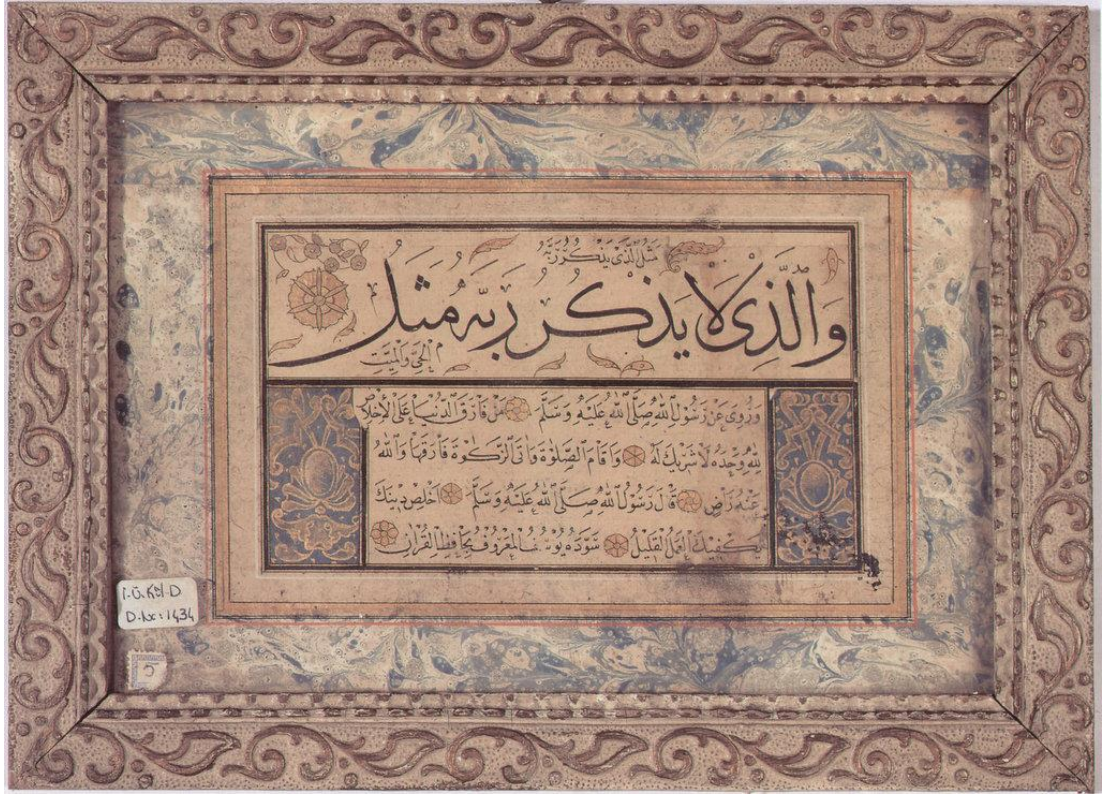 مَثَلُ الَّذِي يَذْكُرُ رَبَّهُ
وَالَّذِي لَا يَذْكُرُ رَبَّهُ مَثَلُ
الْحَيِّ وَالْمَيِّتِ
وَرُوِيَ عَنْ رَسُولِ اللهِ صَلَّى اللهُ عَلَيْهِ وَسَلَّمَ مَنْ فَارَقَ الدُّنْيَا عَلَى الْأِخْلَاصِ
لِلهِ وَحْدَهُ لَا شَرِيكَ لَهُ وَاَقَامَ الصَّلٰوةَ وَاٰتَى الزَّكٰوةَ فَارَقَهَا وَاللهُ
عَنْهُ رَاضٍ قَالَ رَسُولُ اللهِ صَلَّى اللهُ عَلَيْهِ وَسَلَّمَ اَخْلِصْ دِينَكَ
يَكْفِيكَ الْعَمَلُ الْقَلِيلُ سَوَّدَهُ يُوسُفُ الْمَعْرُوفُ بِحَافِظِ الْقُرْاٰنِ
İ.Ü.Ktp.D
D.No: 1434
5